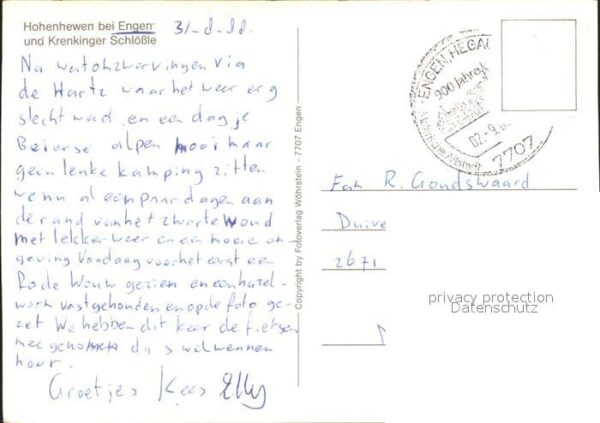 Hohenhewen bei Engen
und Krenkinger Schlößle
31-8-88.
Na watomzwervingen via
de Hartz waar het weer erg
slecht was en een dagje
Beierse alpen mooi maar
geen lenke kamping zitten
we nu al een paar dagen aan
de rand van het zwarte woud
met lekker weer en een mooie om-
geving Vandaag voor het eerst een
Rode Wouw gezien en een hazel-
worm vastgehouden en op de foto ge-
zet We hebben dit keer de fietsen
meegenomen da's wel wennen
hoor.
Groetjes Kees Elly
Copyright by Fotoverlag Wöhrstein - 7707 Engen
ENGEN, HEGAU
900 Jahre
02.-9.
7707
Fam R. Gondswaard
Duive
2671
privacy protection
Datenschutz